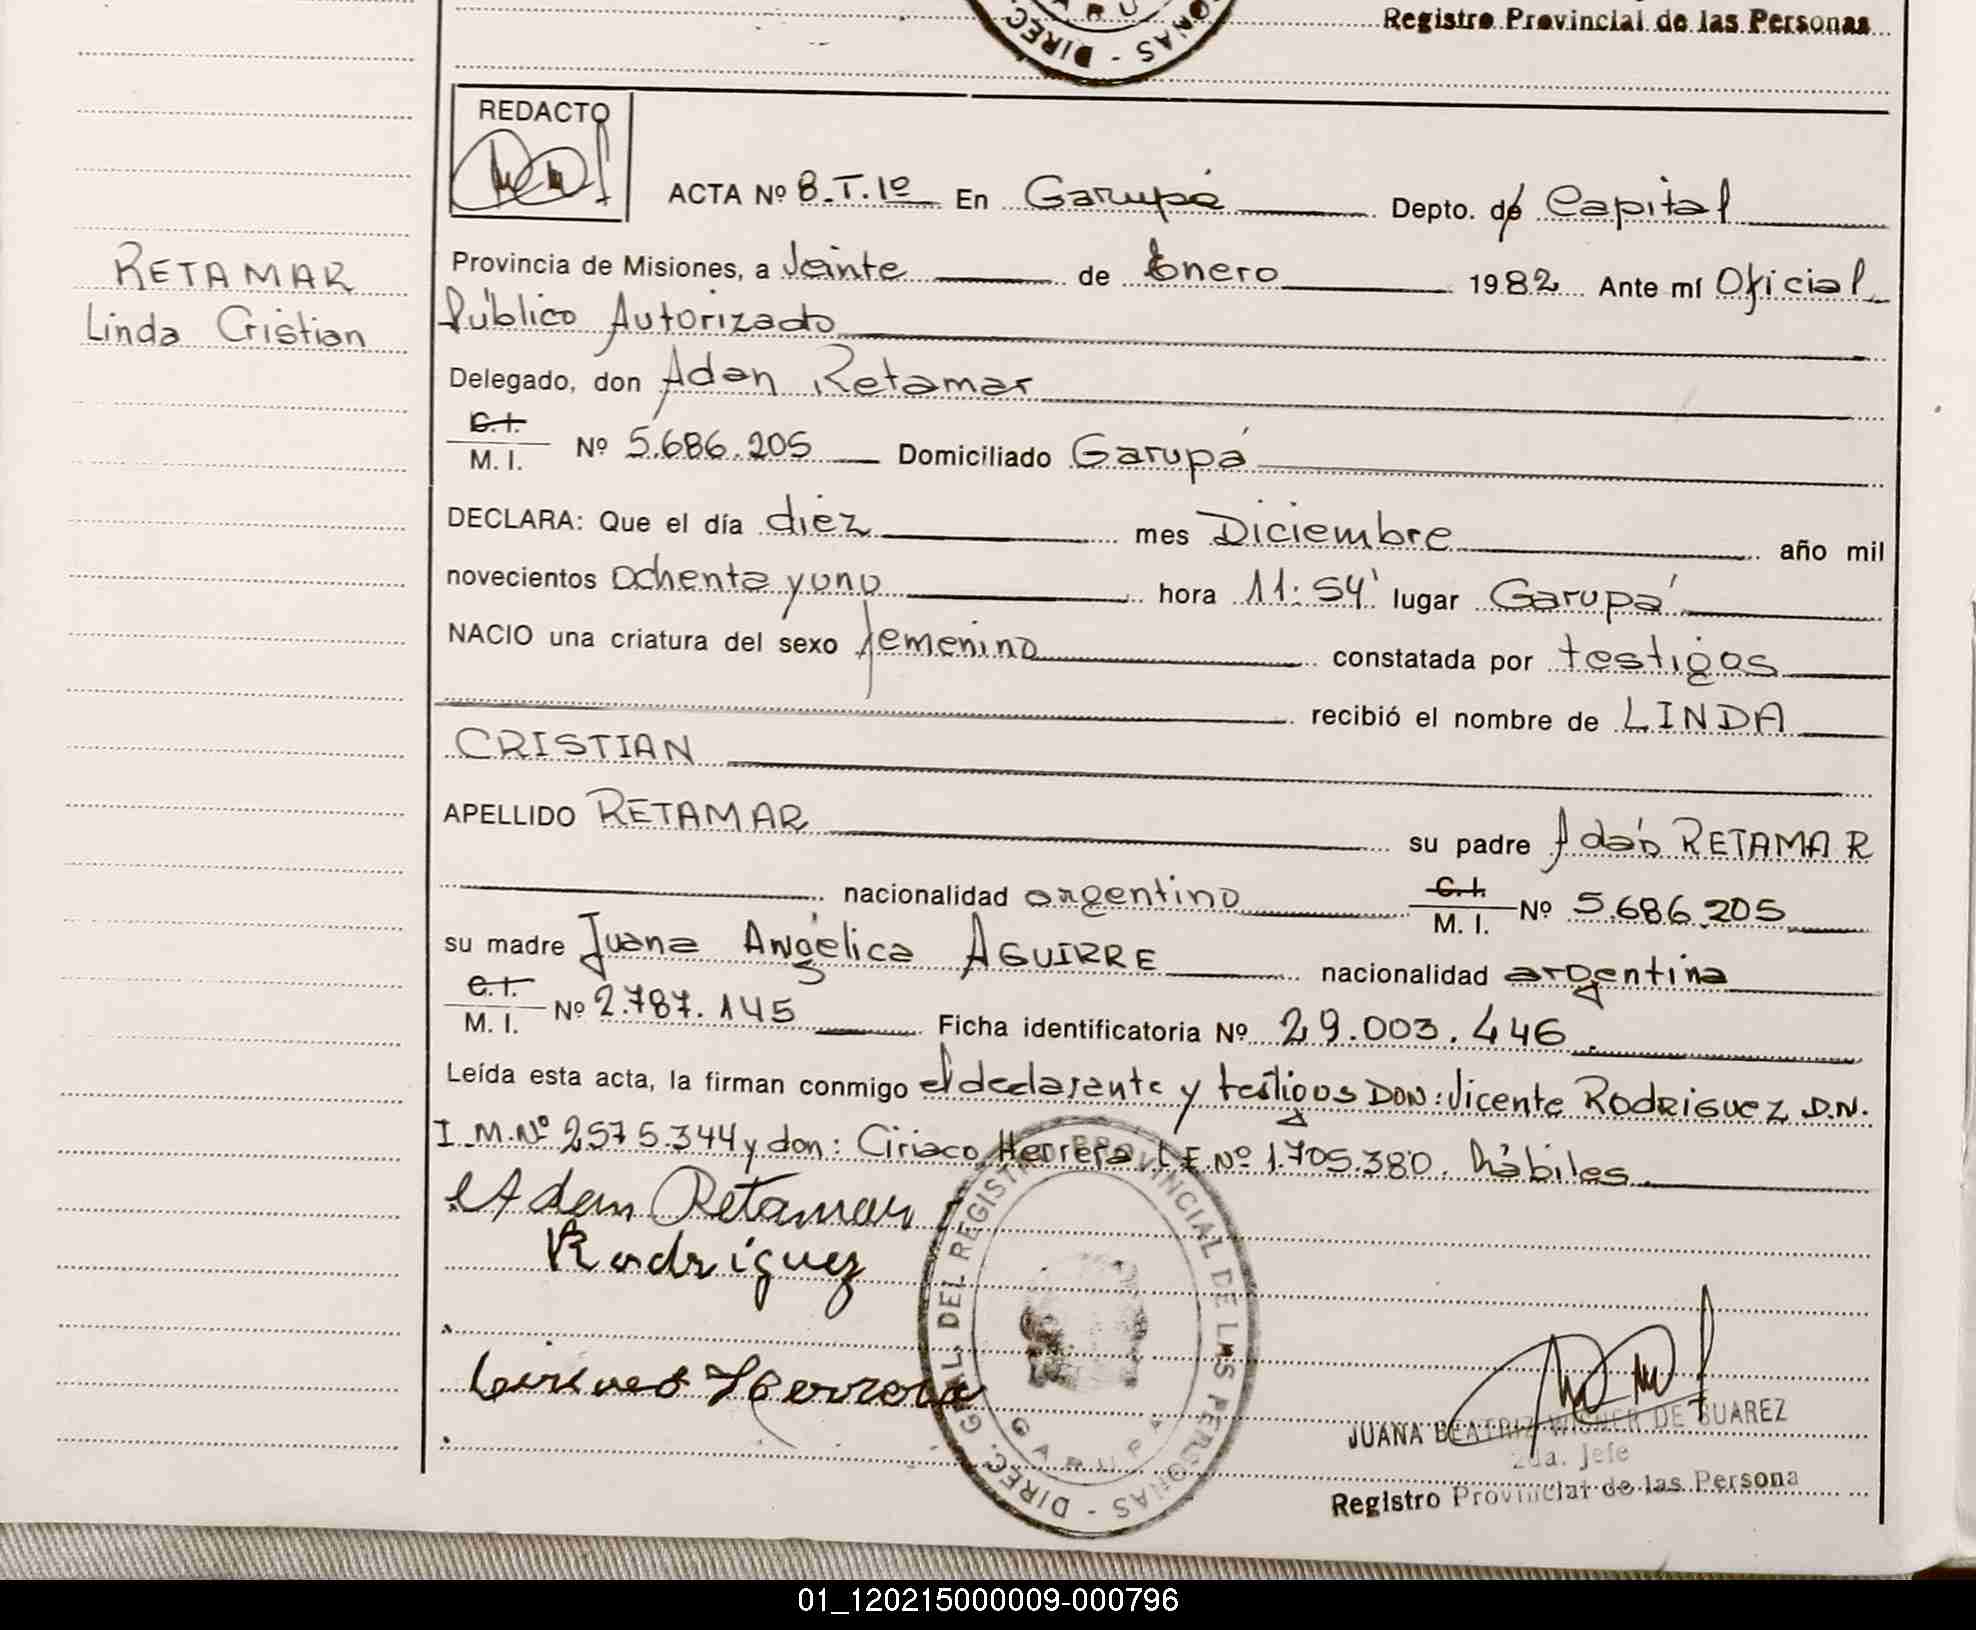 Registro Provincial de las Personas
DIREC
ONAS - DIREC
REDACTO
ACTA Nº 8.T.1º En Garupá Depto. de Capital
RETAMAR
Linda Cristian
Provincia de Misiones, a Veinte de Enero 1982 Ante mí Oficial
Público Autorizado
Delegado, don Adan Retamar
C.I.
M. I. Nº 5.686.205 Domiciliado Garupá
DECLARA: Que el día diez mes Diciembre año mil
novecientos ochenta y uno hora 11:54' lugar Garupá
NACIO una criatura del sexo femenino constatada por testigos
recibió el nombre de LINDA
CRISTIAN
APELLIDO RETAMAR su padre Adán RETAMAR
nacionalidad argentino C.I. M. I. Nº 5.686.205
su madre Juana Angélica AGUIRRE nacionalidad argentina
C.I.
M. I. Nº 2.787.145 Ficha identificatoria Nº 29.003.446
Leída esta acta, la firman conmigo el declarante y testigos DON: Vicente Rodriguez D.N.
I.M.Nº 2575.344 y don: Ciriaco Herrera L.E.Nº 1.705.380. hábiles
Adan Retamar
Rodriguez
Ciriaco Herrera
DIREC. GRAL. DEL REGISTRO PROVINCIAL DE LAS PERSONAS -
GARUPA
JUANA BEATRIZ WISNER DE SUAREZ
2da. Jefe
Registro Provincial de las Persona
01_120215000009-000796